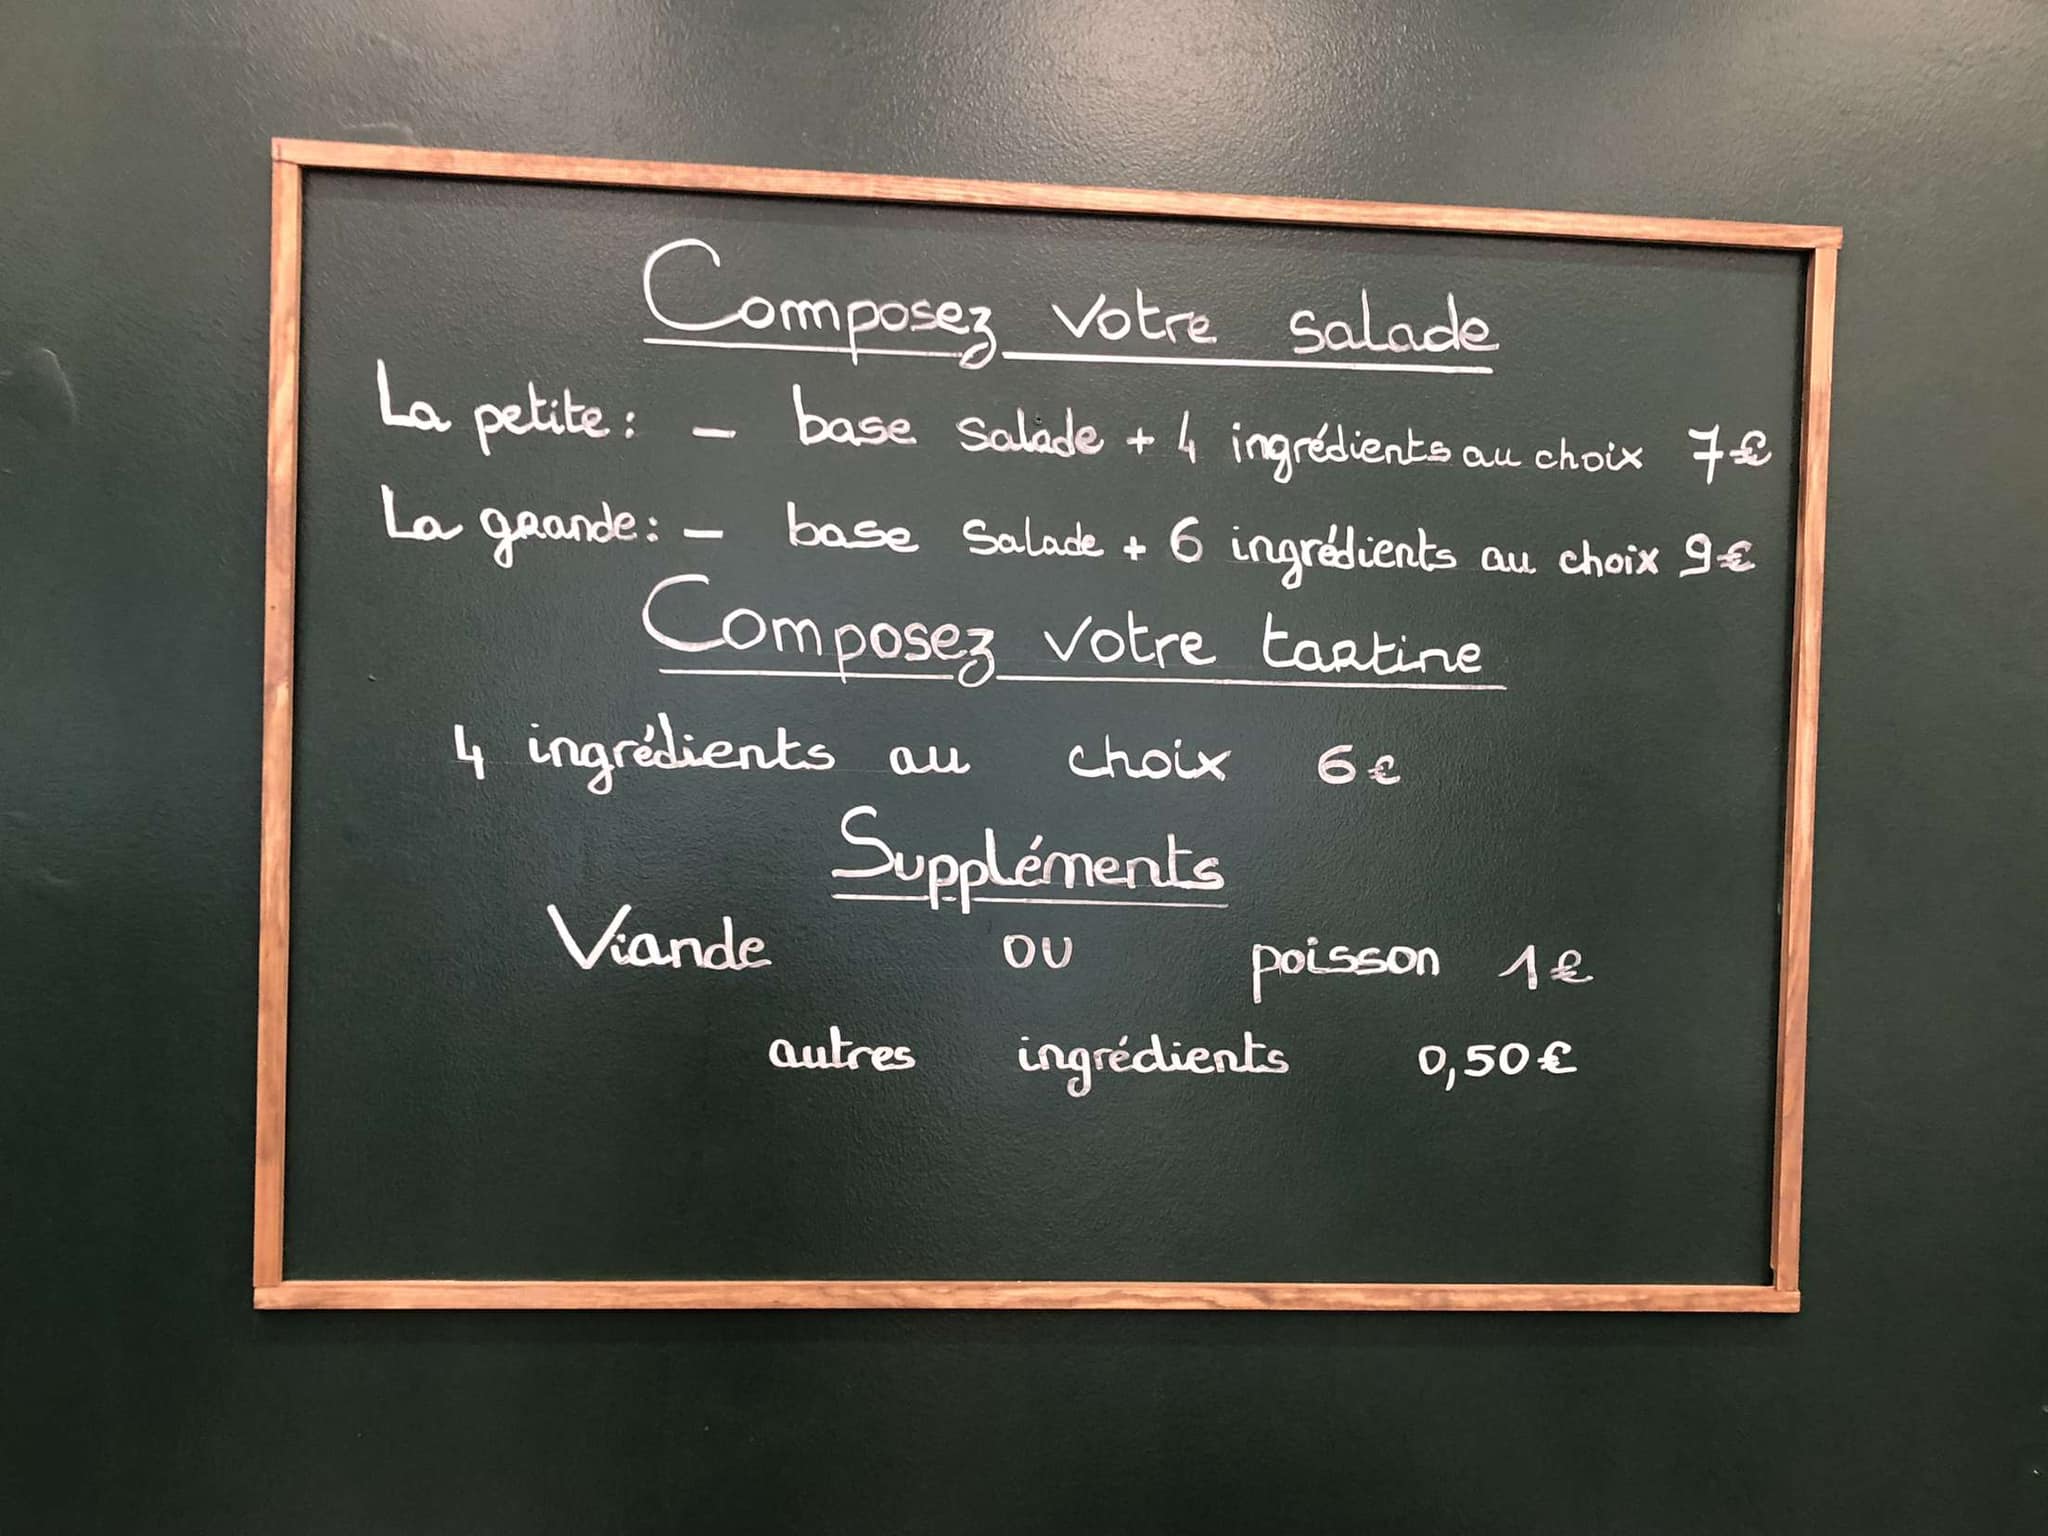 Composez votre salade
La petite : - base salade + 4 ingrédients au choix 7€
La grande : - base salade + 6 ingrédients au choix 9€
Composez votre tartine
4 ingrédients au choix 6€
Suppléments
Viande ou poisson 1€
autres ingrédients 0,50€